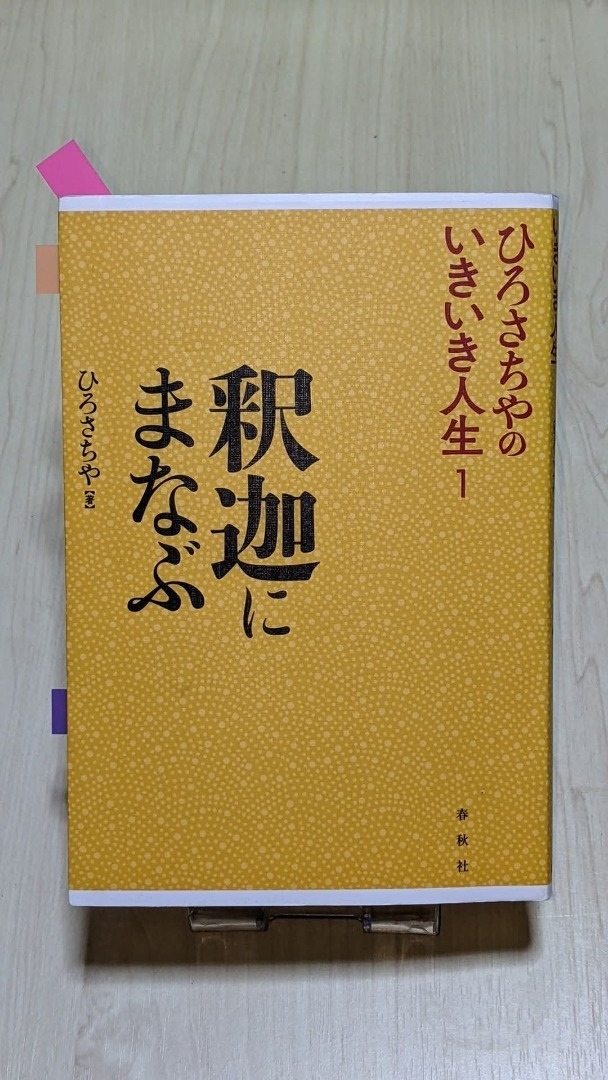 ひろさちやの
いきいき人生 1
釈迦に
まなぶ
ひろさちや【著】
春秋社